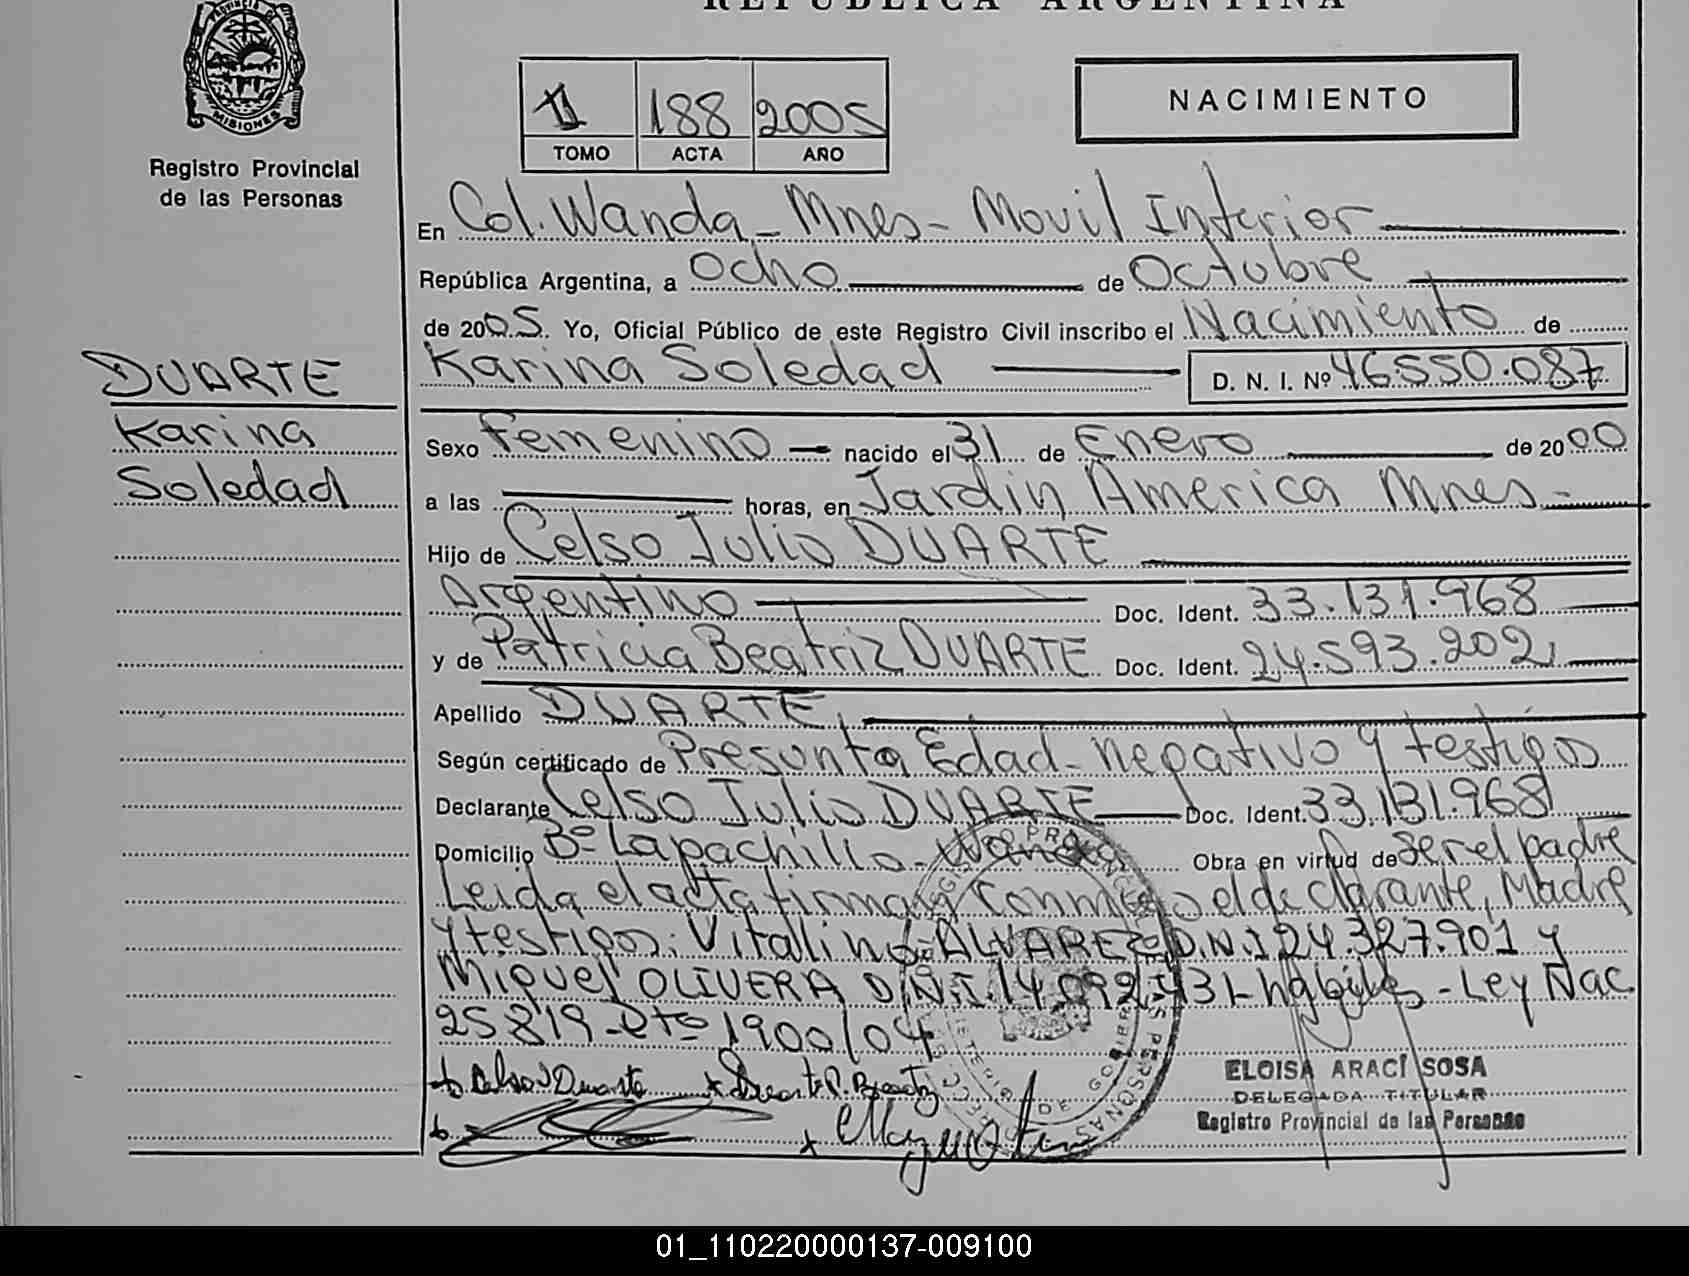 REPUBLICA ARGENTINA
PROVINCIA DE
MISIONES
Registro Provincial
de las Personas
II 188 2005
TOMO ACTA AÑO
NACIMIENTO
En Col. Wanda - Mnes - Movil Interior
República Argentina, a Ocho de Octubre
de 2005. Yo, Oficial Público de este Registro Civil inscribo el Nacimiento de
Karina Soledad D. N. I. Nº 46.550.087
DUARTE
Karina
Soledad
Sexo Femenino nacido el 31 de Enero de 2000
a las horas, en Jardin America Mnes-
Hijo de Celso Julio DUARTE
Argentino Doc. Ident. 33.131.968
y de Patricia Beatriz DUARTE Doc. Ident. 24.593.202,
Apellido DUARTE,
Según certificado de Presunta Edad - negativo y testigos
Declarante Celso Julio DUARTE Doc. Ident. 33.131.968
Domicilio Bº Lapachillo - Wanda Obra en virtud de Ser el padre
Leida el acta firman Conmigo el declarante, Madre
y testigos: Vitalino ALVAREZ D.N.I 24.327.901 y
Miguel OLIVERA D.N.I. 14.092.431 habiles - Ley Nac
25819 - Dto 1900/04
ELOISA ARACÍ SOSA
DELEGADA TITULAR
Registro Provincial de las Personas
01_110220000137-009100